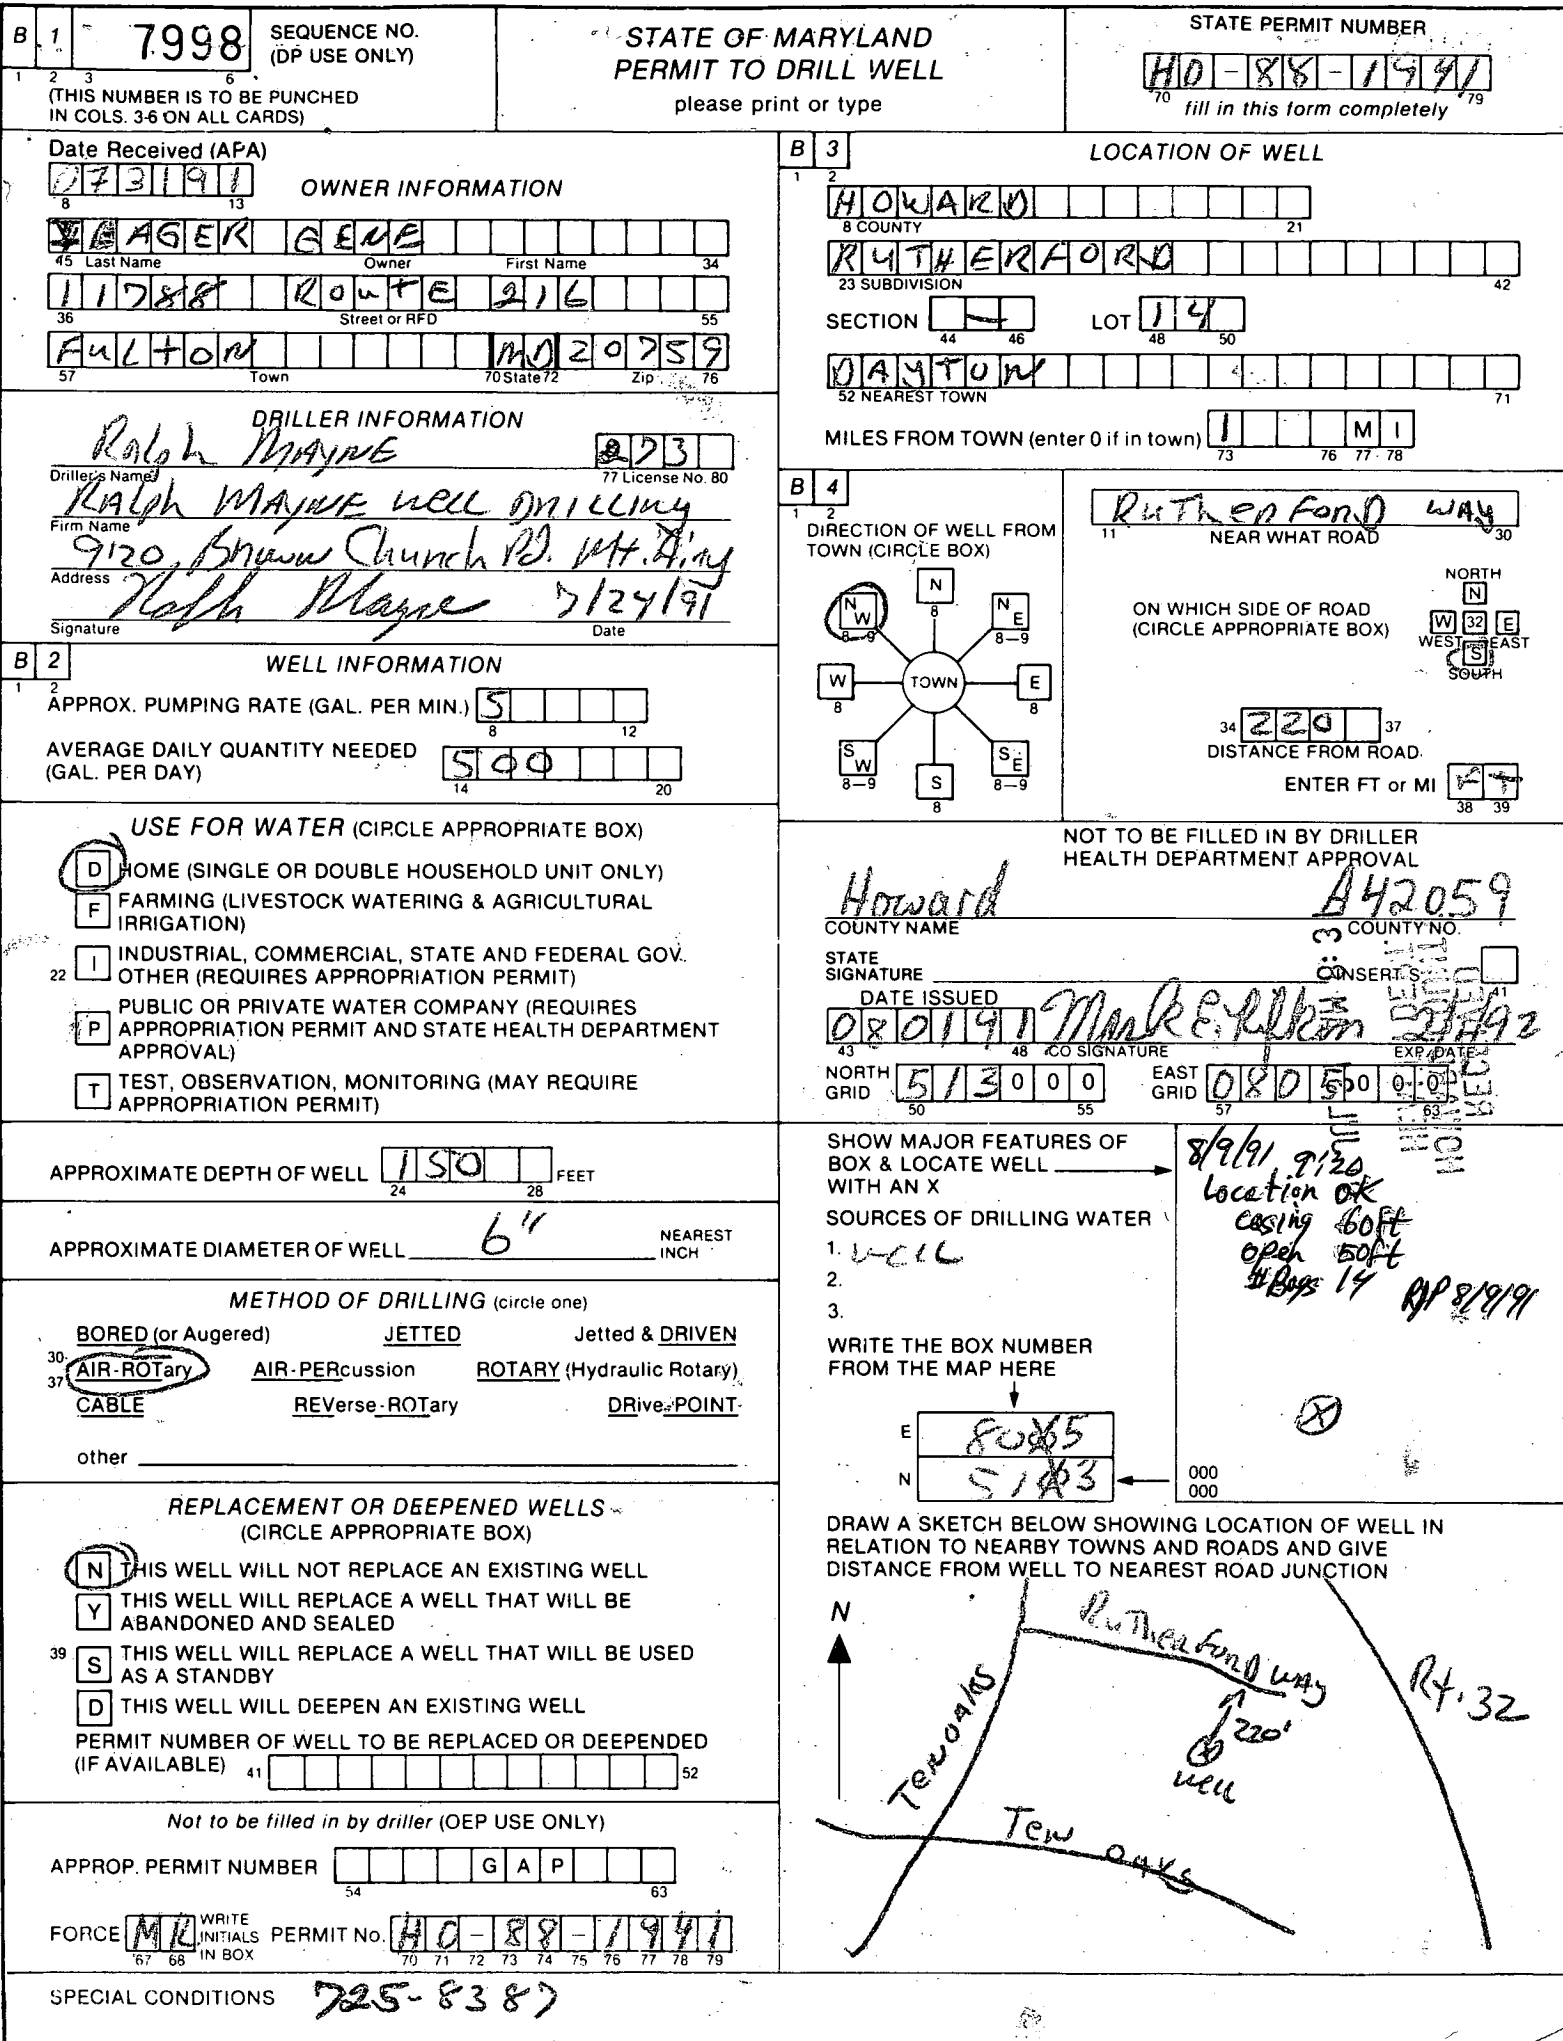 B 1 7998 SEQUENCE NO. (DP USE ONLY)
1 2 3 6
(THIS NUMBER IS TO BE PUNCHED
IN COLS. 3-6 ON ALL CARDS)
STATE OF MARYLAND
PERMIT TO DRILL WELL
please print or type
STATE PERMIT NUMBER
HO-88-1941
70 79
fill in this form completely
Date Received (APA)
073191
8 13
OWNER INFORMATION
YEAGER GENE
15 Last Name Owner First Name 34
11788 RoutE 216
36 Street or RFD 55
FultoN MD 20759
57 Town 70 State 72 Zip 76
DRILLER INFORMATION
Ralph MAYNE 273
Driller's Name 77 License No. 80
RAlph MAYNE well DRILLING
Firm Name
9120 Brown Church Rd. Mt. Airy
Address
Ralph Mayne 7/24/91
Signature Date
B 2 WELL INFORMATION
1 2
APPROX. PUMPING RATE (GAL. PER MIN.) 5
8 12
AVERAGE DAILY QUANTITY NEEDED
(GAL. PER DAY) 500
14 20
USE FOR WATER (CIRCLE APPROPRIATE BOX)
D HOME (SINGLE OR DOUBLE HOUSEHOLD UNIT ONLY)
F FARMING (LIVESTOCK WATERING & AGRICULTURAL
IRRIGATION)
22 I INDUSTRIAL, COMMERCIAL, STATE AND FEDERAL GOV.
OTHER (REQUIRES APPROPRIATION PERMIT)
P PUBLIC OR PRIVATE WATER COMPANY (REQUIRES
APPROPRIATION PERMIT AND STATE HEALTH DEPARTMENT
APPROVAL)
T TEST, OBSERVATION, MONITORING (MAY REQUIRE
APPROPRIATION PERMIT)
APPROXIMATE DEPTH OF WELL 150 FEET
24 28
APPROXIMATE DIAMETER OF WELL 6" NEAREST
INCH
METHOD OF DRILLING (circle one)
BORED (or Augered) JETTED Jetted & DRIVEN
30- AIR-ROTary AIR-PERcussion ROTARY (Hydraulic Rotary)
37 CABLE REVerse-ROTary DRive-POINT
other
REPLACEMENT OR DEEPENED WELLS
(CIRCLE APPROPRIATE BOX)
N THIS WELL WILL NOT REPLACE AN EXISTING WELL
Y THIS WELL WILL REPLACE A WELL THAT WILL BE
ABANDONED AND SEALED
39 S THIS WELL WILL REPLACE A WELL THAT WILL BE USED
AS A STANDBY
D THIS WELL WILL DEEPEN AN EXISTING WELL
PERMIT NUMBER OF WELL TO BE REPLACED OR DEEPENED
(IF AVAILABLE) 41 52
Not to be filled in by driller (OEP USE ONLY)
APPROP. PERMIT NUMBER G A P
54 63
FORCE MR WRITE INITIALS IN BOX PERMIT No. HO-88-1941
67 68 70 71 72 73 74 75 76 77 78 79
SPECIAL CONDITIONS 725-8387
B 3 LOCATION OF WELL
1 2
HOWARD
8 COUNTY 21
RUTHERFORD
23 SUBDIVISION 42
SECTION — LOT 14
44 46 48 50
DAYTON
52 NEAREST TOWN 71
MILES FROM TOWN (enter 0 if in town) 1 M I
73 76 77 - 78
B 4
1 2
DIRECTION OF WELL FROM
TOWN (CIRCLE BOX)
N 8
NW 8-9 NE 8-9
W 8 TOWN E 8
SW 8-9 SE 8-9
S 8
RuTherForD WAy
11 NEAR WHAT ROAD 30
ON WHICH SIDE OF ROAD
(CIRCLE APPROPRIATE BOX)
NORTH
N
W 32 E
WEST EAST
S
SOUTH
34 220 37
DISTANCE FROM ROAD
ENTER FT or MI FT
38 39
NOT TO BE FILLED IN BY DRILLER
HEALTH DEPARTMENT APPROVAL
Howard A42059
COUNTY NAME COUNTY NO.
STATE
SIGNATURE INSERT S
41
DATE ISSUED
080191
43 48 CO SIGNATURE EXP. DATE
NORTH
GRID 513000
50 55
EAST
GRID 0805000
57 63
SHOW MAJOR FEATURES OF
BOX & LOCATE WELL
WITH AN X
SOURCES OF DRILLING WATER
1. well
2.
3.
WRITE THE BOX NUMBER
FROM THE MAP HERE
E
N
8/9/91 9:20
Location OK
casing 60ft
open 50ft
# Bags 14
8/9/91
X
000
000
DRAW A SKETCH BELOW SHOWING LOCATION OF WELL IN
RELATION TO NEARBY TOWNS AND ROADS AND GIVE
DISTANCE FROM WELL TO NEAREST ROAD JUNCTION
N
RuTherForD WAy
Rt. 32
TENOAKS
220'
well
Ten OAKS